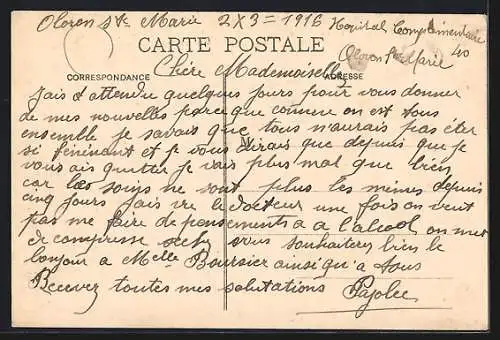 Oloron Ste Marie 2 X 3 = 1916 Hopital Complémentaire
40
Oloron Ste Marie
CARTE POSTALE
CORRESPONDANCE
ADRESSE
Chère Mademoiselle
Jais d'attendu quelques jours pour vous donner
de mes nouvelles parce que comme on est tous
ensemble je savais que tous n'aurais pas éter
si et je vous dirais que depuis que je
vous ais quitter je vais plus mal que bien
car les soins ne sont plus les mêmes depuis
cinq jours jais vue le docteur une fois on veut
pas me faire de pansements a a l'alcool on met
de compresse vous souhaiterez bien le
bonjour à Melle Boursier ainsi qu'a tous
Recevez toutes mes salutations Pajolec